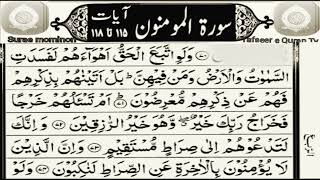 سورۃ المومنون آیات ۱۱۵ تا ۱۱۸
Suree mominon
Tafseer e Quran Tv
وَلَوِ اتَّبَعَ الْحَقُّ اَهْوَآءَهُمْ لَفَسَدَتِ
السَّمٰوٰتُ وَالْاَرْضُ وَمَنْ فِيْهِنَّ ؕ بَلْ اَتَيْنٰهُمْ بِذِكْرِهِمْ
فَهُمْ عَنْ ذِكْرِهِمْ مُّعْرِضُوْنَ ؕ اَمْ تَسْـَٔلُهُمْ خَرْجًا
فَخَرَاجُ رَبِّكَ خَيْرٌ ۖ وَّهُوَ خَيْرُ الرّٰزِقِيْنَ ۝۷۲ وَاِنَّكَ
لَتَدْعُوْهُمْ اِلٰى صِرَاطٍ مُّسْتَقِيْمٍ ۝۷۳ وَاِنَّ الَّذِيْنَ
لَا يُؤْمِنُوْنَ بِالْاٰخِرَةِ عَنِ الصِّرَاطِ لَنٰكِبُوْنَ ۝۷۴ وَلَوْ